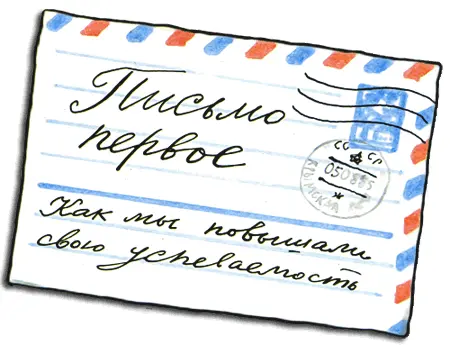 Письмо
первое
СССР
050885
Как мы повышали
свою успеваемость